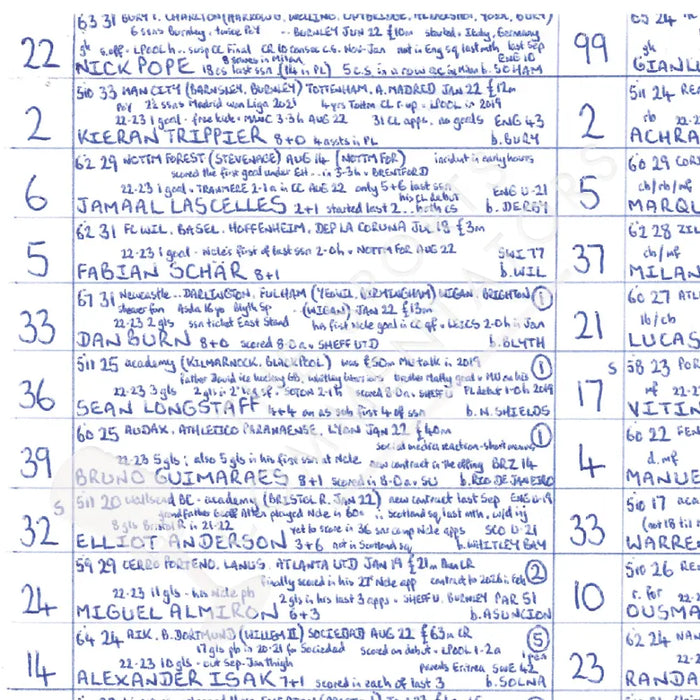 63 31 BURY T. CHARLTON (HARROW, WELLING, UXBRIDGE, ALDERSHOT, YORK, BURY)
6 ssns Burnley - twice POY .. BURNLEY JUN 22 £10m started - Italy, Germany
gk s.off - LPOOL h .. susp CC Final CR 10 consec C.S. Nov-Jan not in Eng sq last mth, last Sep
8 saves in Milan ENG 10
22 NICK POPE 18 cs last ssn (14 in PL) 5 c.s. in a row b. SOHAM
99
gk
GIANL
510 33 MAN CITY (BARNSLEY, BURNLEY) TOTTENHAM, A. MADRID JAN 22 £12m
POY 2½ ssns Madrid won Liga 2021 4 yrs Tottm CL r-up - LPOOL in 2019
22-23 1 goal - free kick - MANC 3-3 h AUG 22 31 CL apps. no goals ENG 43
2 KIERAN TRIPPIER 8+0 4 assts in PL b. BURY
511 24 REA
rb 22-2
2 ACHRA
62 29 NOTTM FOREST (STEVENAGE) AUG 14 [NOTTM FOR) incident in early hours
scored the first good under Eit... in 3-3 h - BRENTFORD
22-23 1 goal - TRANMERE 2-1 a in CC AUG 22 only 5+6 last ssn ENG U-21
his CL debut
6 JAMAAL LASCELLES 2+1 started last 2... both cs b. DERBY
60 29 COR
cb/rb/mf
5 MARQU
62 31 FC WIL. BASEL. HOFFENHEIM, DEP LA CORUNA JUL 18 £3m
22-23 1 goal - Ncle's first of last ssn 2-0 h - NOTTM FOR AUG 22 SWI 77
5 FABIAN SCHÄR 8+1 b. WIL
62 28 ZIL
cb/mf
37 MILAN
67 31 Newcastle .. DARLINGTON, FULHAM (YEOVIL, BIRMINGHAM) WIGAN, BRIGHTON 1
shower fan Asda 16 yo Blyth Sp (WIGAN) JAN 22 £13m
22-23 2 gls ssn ticket East Stand his first Ncle goal in CC QF - LEICS 2-0 h in Jan
33 DAN BURN 8+0 scored 8-0 a - SHEFF UTD b. BLYTH
60 27 ATL
lb/cb
21 LUCAS
511 25 academy (KILMARNOCK, BLACKPOOL) was £50m Mu talk in 2019 1
father David ice hockey GB, Whitley Warriors brother Matty goal - MU on his
22-23 3 gls 2 gls in 2nd leg SF - SOTON 2-1 h scored 8-0 a - SHEFFU PL debut 1-0 h 2019
36 SEAN LONGSTAFF 4+4 on as sub first 4 of ssn b. N. SHIELDS
S 58 23 POR
mf 22-23
17 VITIN
60 25 AUDAX, ATHLETICO PARANAENSE, LYON JAN 22 £40m 1
social media reaction - short means
22-23 5 gls; also 5 gls in his first ssn at Ncle new contract in the offing BRZ 14
39 BRUNO GUIMARAES 8+1 scored in 8-0 a - SU b. RIO DE JANEIRO
60 22 FEN
d. mf
4 MANUE
S 511 20 Wallsend BC - academy (BRISTOL R. JAN 22) new contract last Sep ENG U-19
grandfather Geoff Allen played Ncle in 60s in Scotland sq last mth, w/d inj
8 gls Bristol R in 21-22 yet to score in 36 snr comp Ncle apps SCO U-21
32 ELLIOT ANDERSON 3+6 not in Scotland sq b. WHITLEY BAY
510 17 aca
(not 18 till
33 WARRE
59 29 CERRO PORTENO. LANUS. ATLANTA UTD JAN 19 £21m then CR 2
finally scored in his 27th Ncle app contract to 2026 in Feb
22-23 11 gls - his Ncle pb 2 gls in his last 3 apps - SHEFF U, BURNLEY PAR 51
24 MIGUEL ALMIRON 6+3 b. ASUNCION
510 26 RE
r. for 22-2
10 OUSMA
64 24 AIK, B. DORTMUND (WILLEM II) SOCIEDAD AUG 22 £63m CR 5
17 gls pb in 20-21 for Sociedad scored on debut - LPOOL 1-2 a 1 pen
22-23 10 gls - out Sep-Jan thigh parents Eritrea SWE 42
14 ALEXANDER ISAK 7+1 scored in each of last 3 b. SOLNA
62 24 NAN
23 RANDA